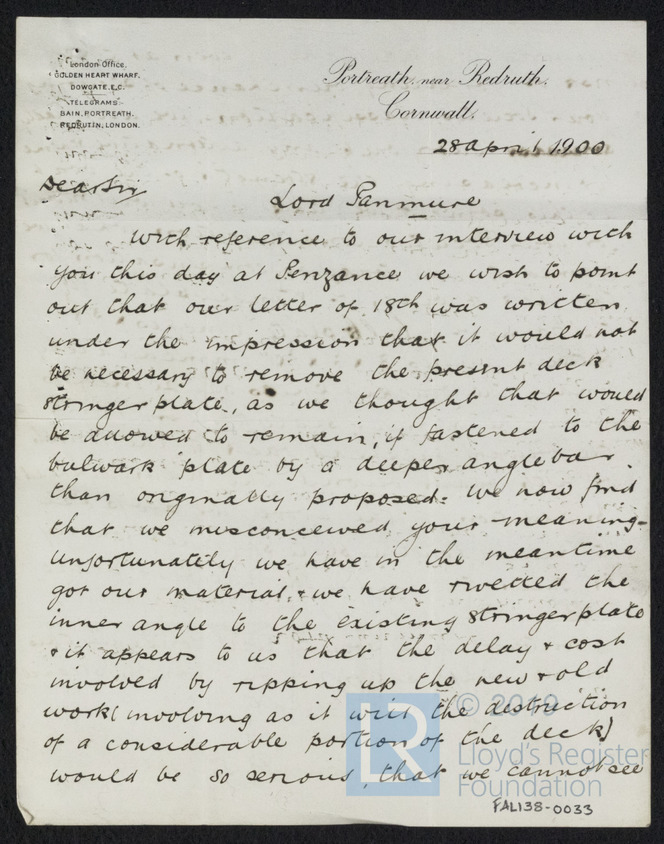 London Office.
GOLDEN HEART WHARF.
DOWGATE. E.C.
TELEGRAMS:-
BAIN, PORTREATH.
REDRUTIN, LONDON.
Portreath, near Redruth.
Cornwall.
28 April 1900
Dear Sir
Lord Panmure
With reference to our interview with
you this day at Penzance we wish to point
out that our letter of 18th was written
under the impression that it would not
be necessary to remove the present deck
stringer plate, as we thought that would
be allowed to remain, if fastened to the
bulwark plate by a deeper angle bar
than originally proposed. We now find
that we misconceived your meaning -
Unfortunately we have in the meantime
got our material, & we have rivetted the
inner angle to the existing stringer plate
& it appears to us that the delay & cost
involved by ripping up the new & old
work (involving as it will the destruction
of a considerable portion of the deck)
would be so serious, that we cannot see
LR
© 2019
Lloyd's Register
Foundation
FAL138-0033